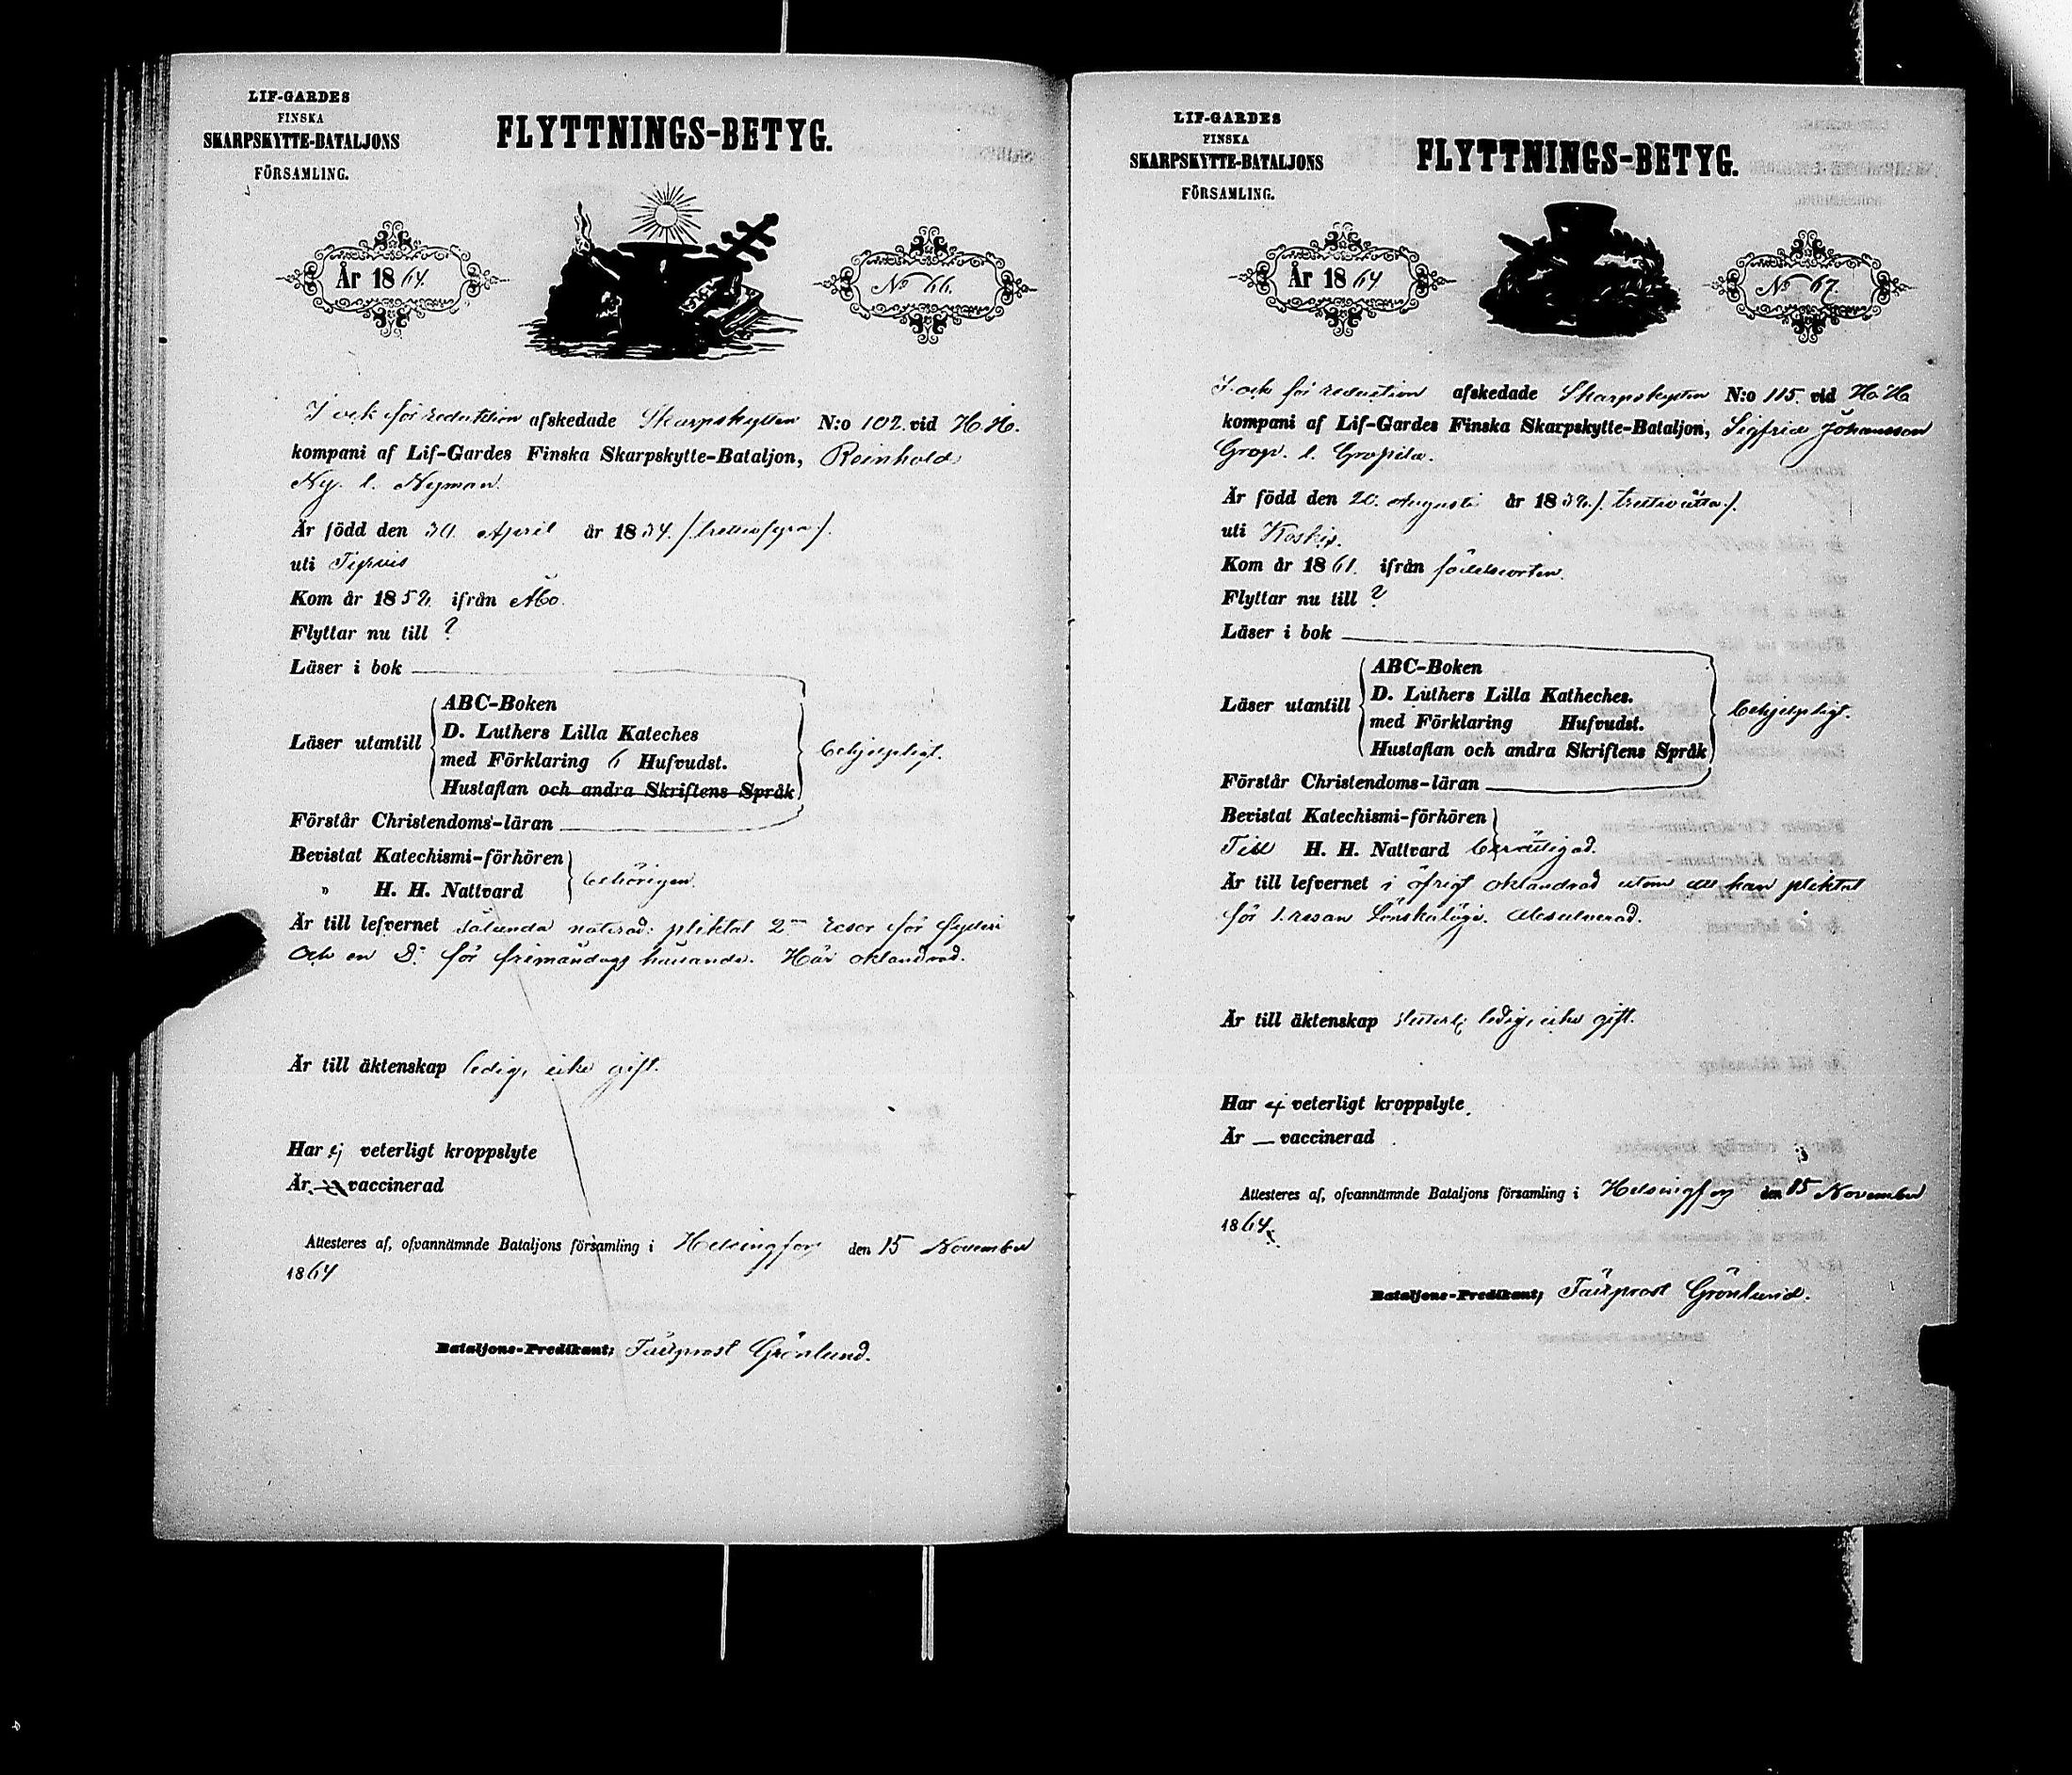 LIF-GARDES
FINSKA
SKARPSKYTTE-BATALJONS
FÖRSAMLING.
FLYTTNINGS-BETYG.
År 1864.
No 66.
I och för reduktion afskedade Skarpskytten N:o 102. vid H. H.
kompani af Lif-Gardes Finska Skarpskytte-Bataljon, Reinhold
Ny. l. Nyman.
Är född den 30 April år 1834. /:trettiofyra:/.
uti
Kom år 1858 ifrån Åbo.
Flyttar nu till ?
Läser i bok
Läser utantill
ABC-Boken
D. Luthers Lilla Kateches
med Förklaring 6 Hufvudst.
Hustaflan och andra Skriftens Språk
behjelpligt.
Förstår Christendoms-läran
Bevistat Katechismi-förhören
" H. H. Nattvard
behörigen.
Är till lefvernet sålunda noterad: pliktat 2 resor för fylleri
och en D:o för frimåndags hållande. Här oklandrad.
Är till äktenskap ledig, icke gift.
Har ej veterligt kroppslyte
Är vaccinerad
Attesteres af, ofvannämnde Bataljons församling i Helsingfors den 15 November
1864
Bataljons-Predikant; Fältprost Grönlund.
LIF-GARDES
FINSKA
SKARPSKYTTE-BATALJONS
FÖRSAMLING.
FLYTTNINGS-BETYG.
År 1864
No 67.
I och för reduction afskedade Skarpskytten N:o 115. vid H. H
kompani af Lif-Gardes Finska Skarpskytte-Bataljon, Sigfrid Johansson
Grop. l. Gropila.
Är född den 20. Augusti år 1838 /:trettioåtta:/.
uti Koskis.
Kom år 1861. ifrån födelseorten.
Flyttar nu till ?
Läser i bok
Läser utantill
ABC-Boken
D. Luthers Lilla Katheches.
med Förklaring Hufvudst.
Hustaflan och andra Skriftens Språk
behjelpligt.
Förstår Christendoms-läran
Bevistat Katechismi-förhören
Till H. H. Nattvard berättigad.
Är till lefvernet i öfrigt oklandrad utom att han pliktat
för 1. resan Lönskaläge. Absolverad.
Är till äktenskap ledig, icke gift.
Har ej veterligt kroppslyte
Är — vaccinerad
Attesteres af, ofvannämnde Bataljons församling i Helsingfors den 15 November
1864.
Bataljons-Predikant; Fältprost Grönlund.